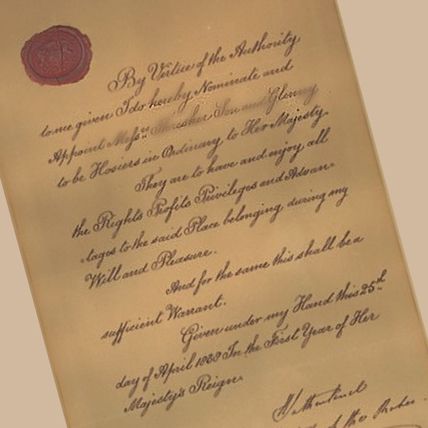 By Vertue of the Authority
to me given I do hereby Nominate and
Appoint Messrs Thresher Son and Glenny
to be Hosiers in Ordinary to Her Majesty.
They are to have and enjoy all
the Rights Profits Privileges and Advan-
tages to the said Place belonging during my
Will and Pleasure.
And for the same this shall be a
sufficient Warrant.
Given under my Hand this 25th
day of April 1838 In the First Year of Her
Majesty's Reign.
of the Robes.